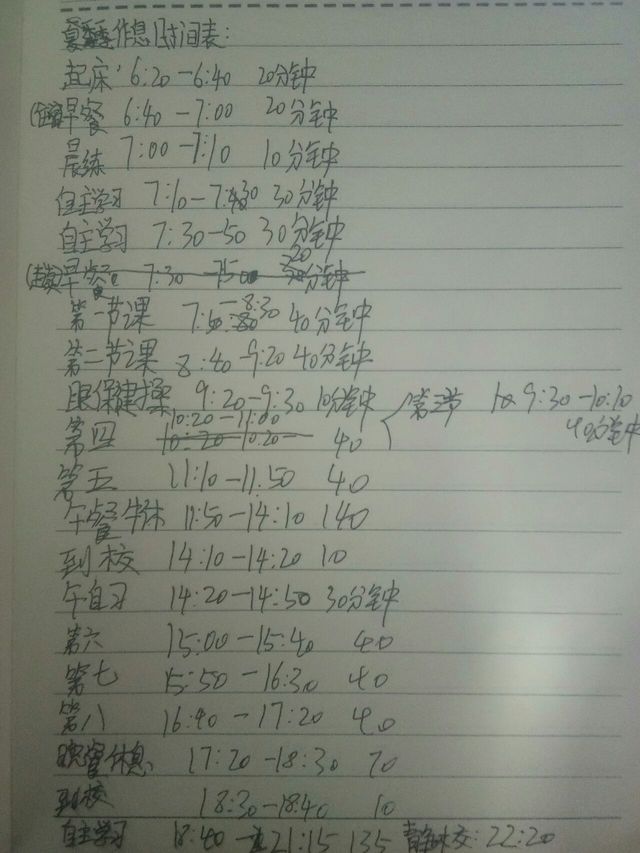 夏季作息时间表:
起床 6:20-6:40 20分钟
早餐 6:40-7:00 20分钟
晨练 7:00-7:10 10分钟
自主学习 7:10-7:30 30分钟
自主学习 7:30-50 30分钟
早餐 7:30 分钟
第一节课 7:50 -8:30 40分钟
第二节课 8:40-9:20 40分钟
眼保健操 9:20-9:30 10分钟 第三节 9:30-10:10
40分钟
10:20-11:00
第四 10:20 10:20- 40
第五 11:10-11:50 40
午餐午休 11:50-14:10 140
到校 14:10-14:20 10
午自习 14:20-14:50 30分钟
第六 15:00-15:40 40
第七 15:50-16:30 40
第八 16:40-17:20 40
晚餐休息 17:20-18:30 70
到校 18:30-18:40 10
自主学习 18:40-21:15 135 静校: 22:20